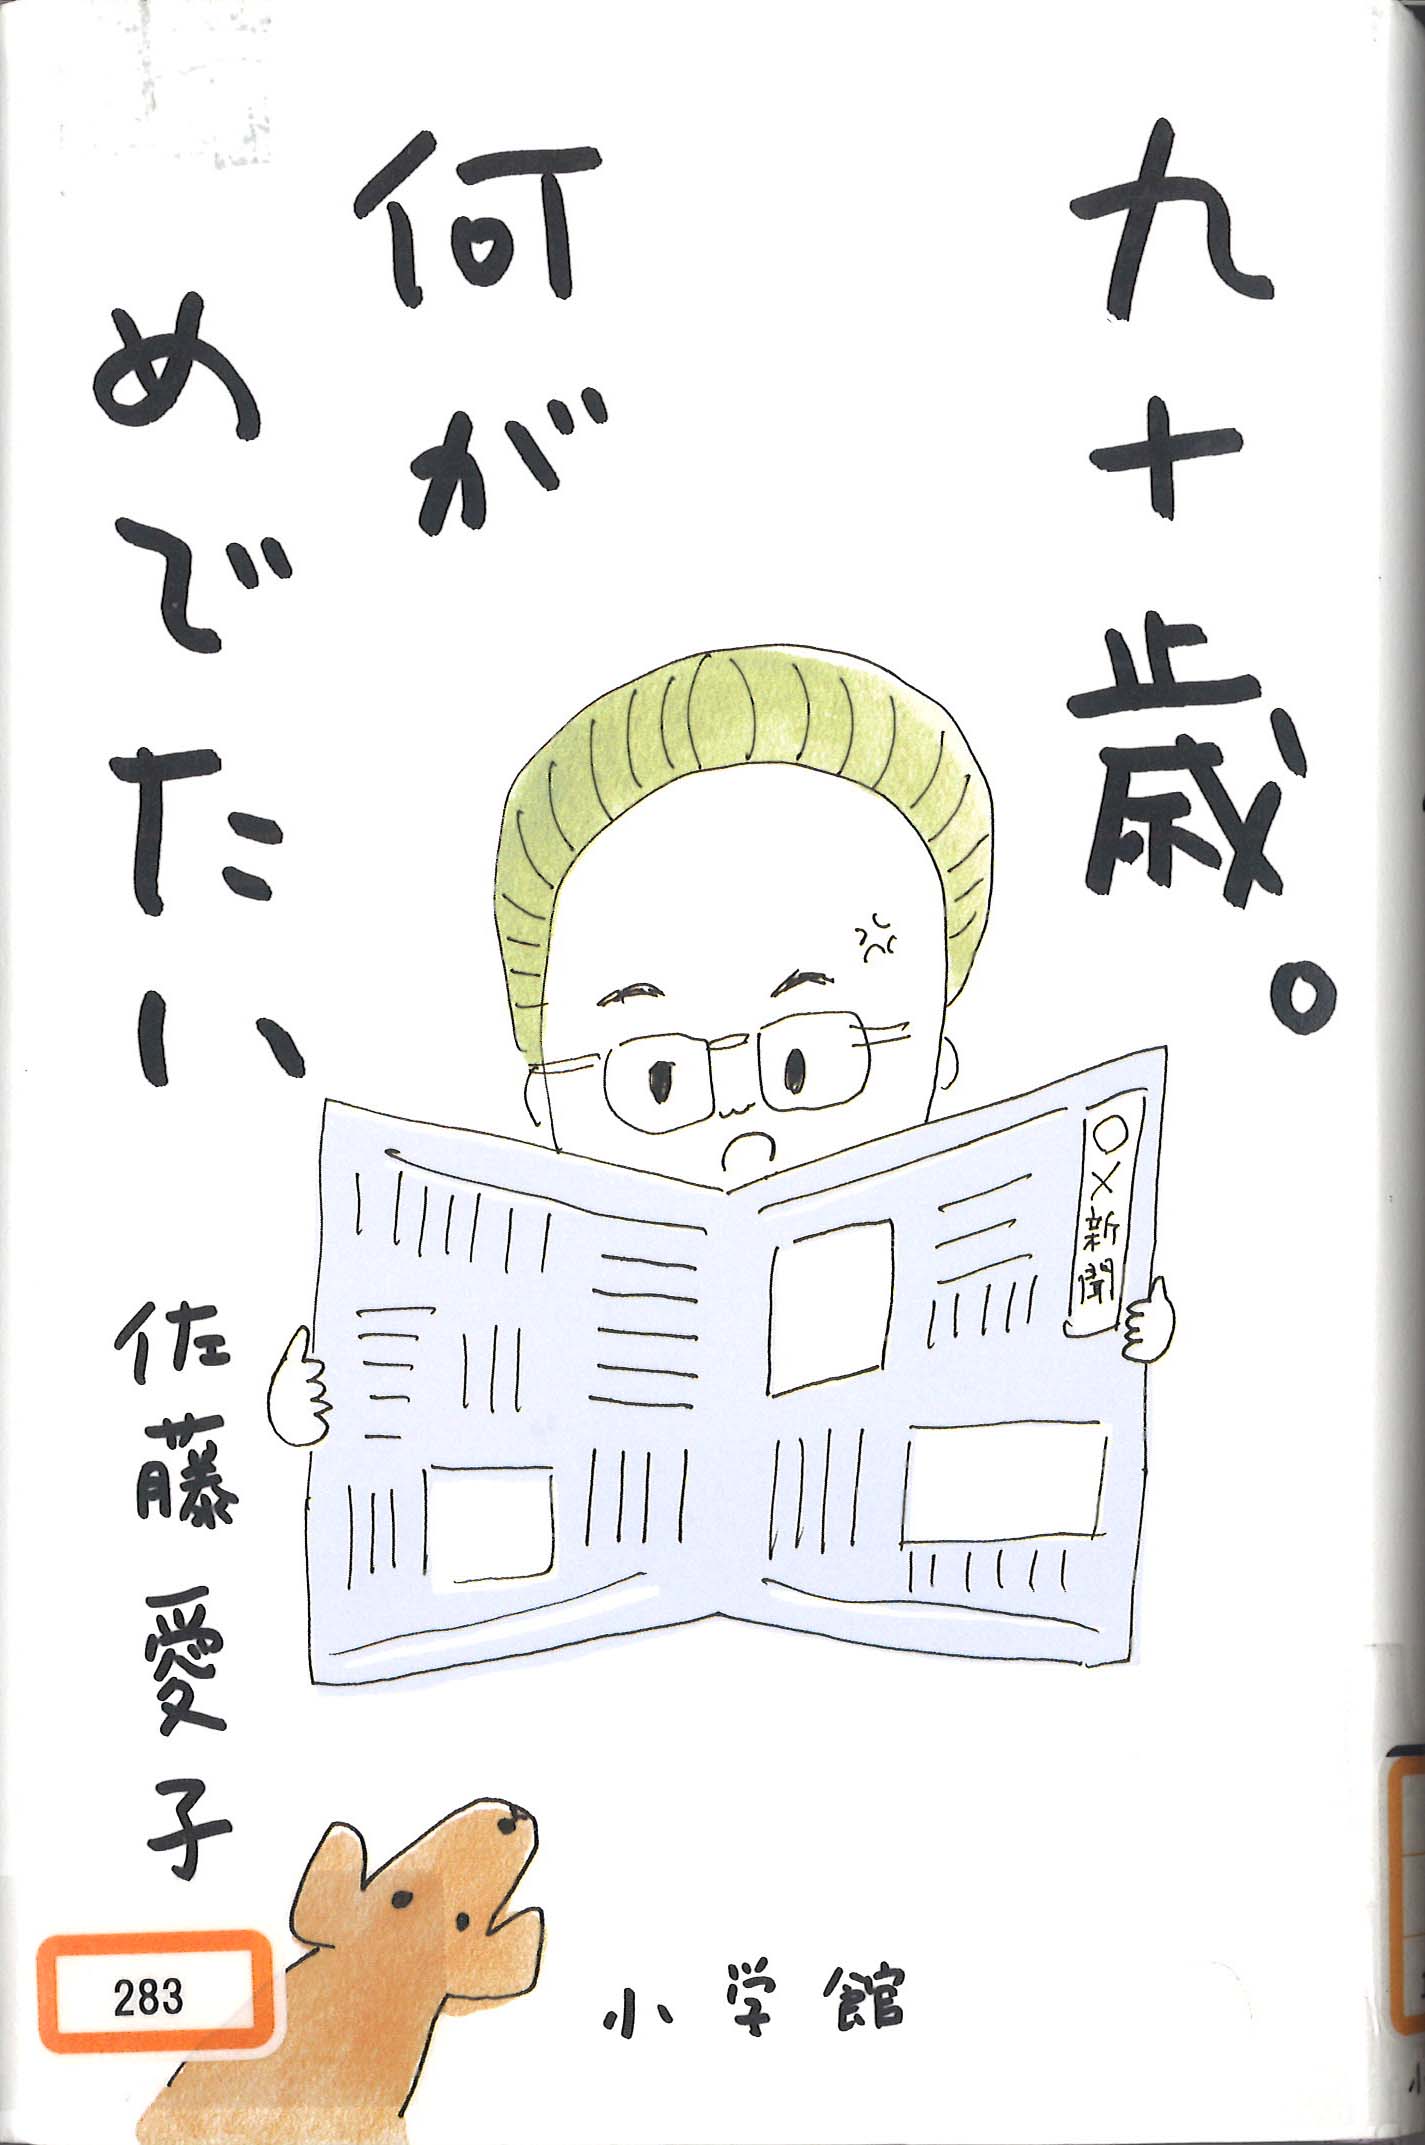 九十歳。
何が
めでたい
佐藤愛子
○×新聞
283
小学館